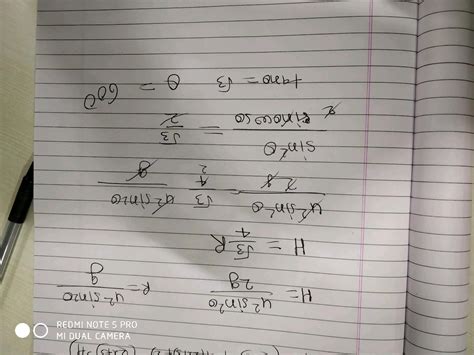 H = u²sin²θ/2g   R = u²sin2θ/g
H = √3/4 R
u²sin²θ/2g = √3/4 u²sin2θ/g
2
sin²θ/2sinθcosθ = √3/2
tanθ = √3   θ = 60°
REDMI NOTE 5 PRO
MI DUAL CAMERA